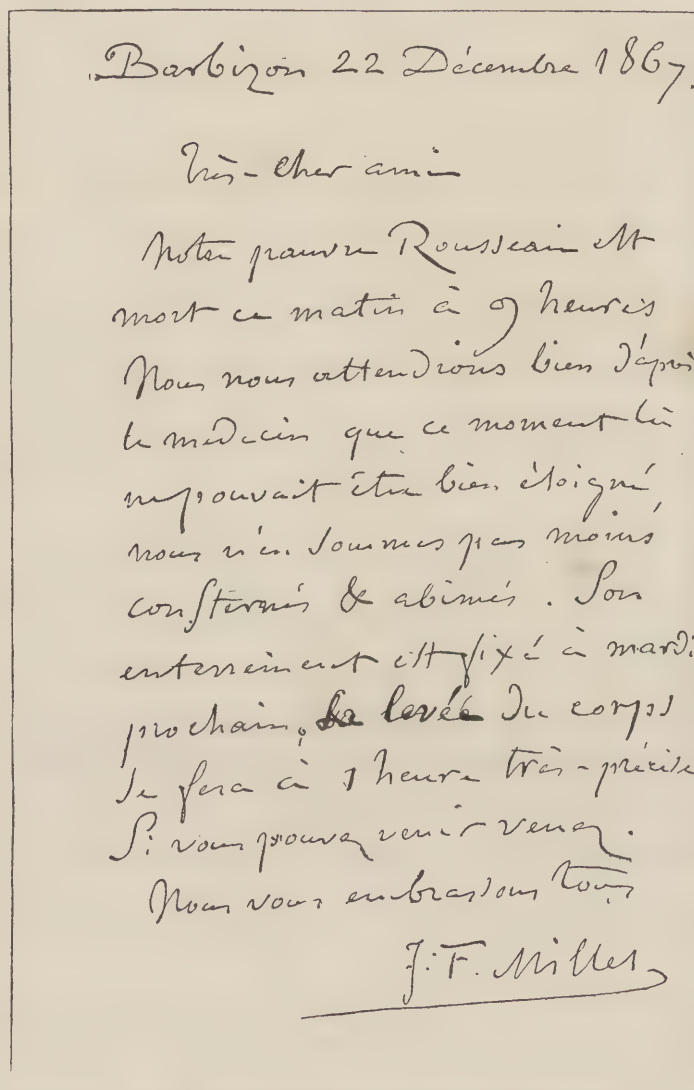 Barbizon 22 Décembre 1867.
Très-cher ami
Notre pauvre Rousseau est
mort ce matin à 9 heures
Nous nous attendions bien d'après
le médecin que ce moment là
ne pouvait être bien éloigné
nous n'en sommes pas moins
consternés & abimés. Son
enterrement est fixé à mardi
prochain, la levée du corps
se fera à 1 heure très-précise
Si vous pouvez venir venez.
Nous vous embrassons tous
J. F. Millet